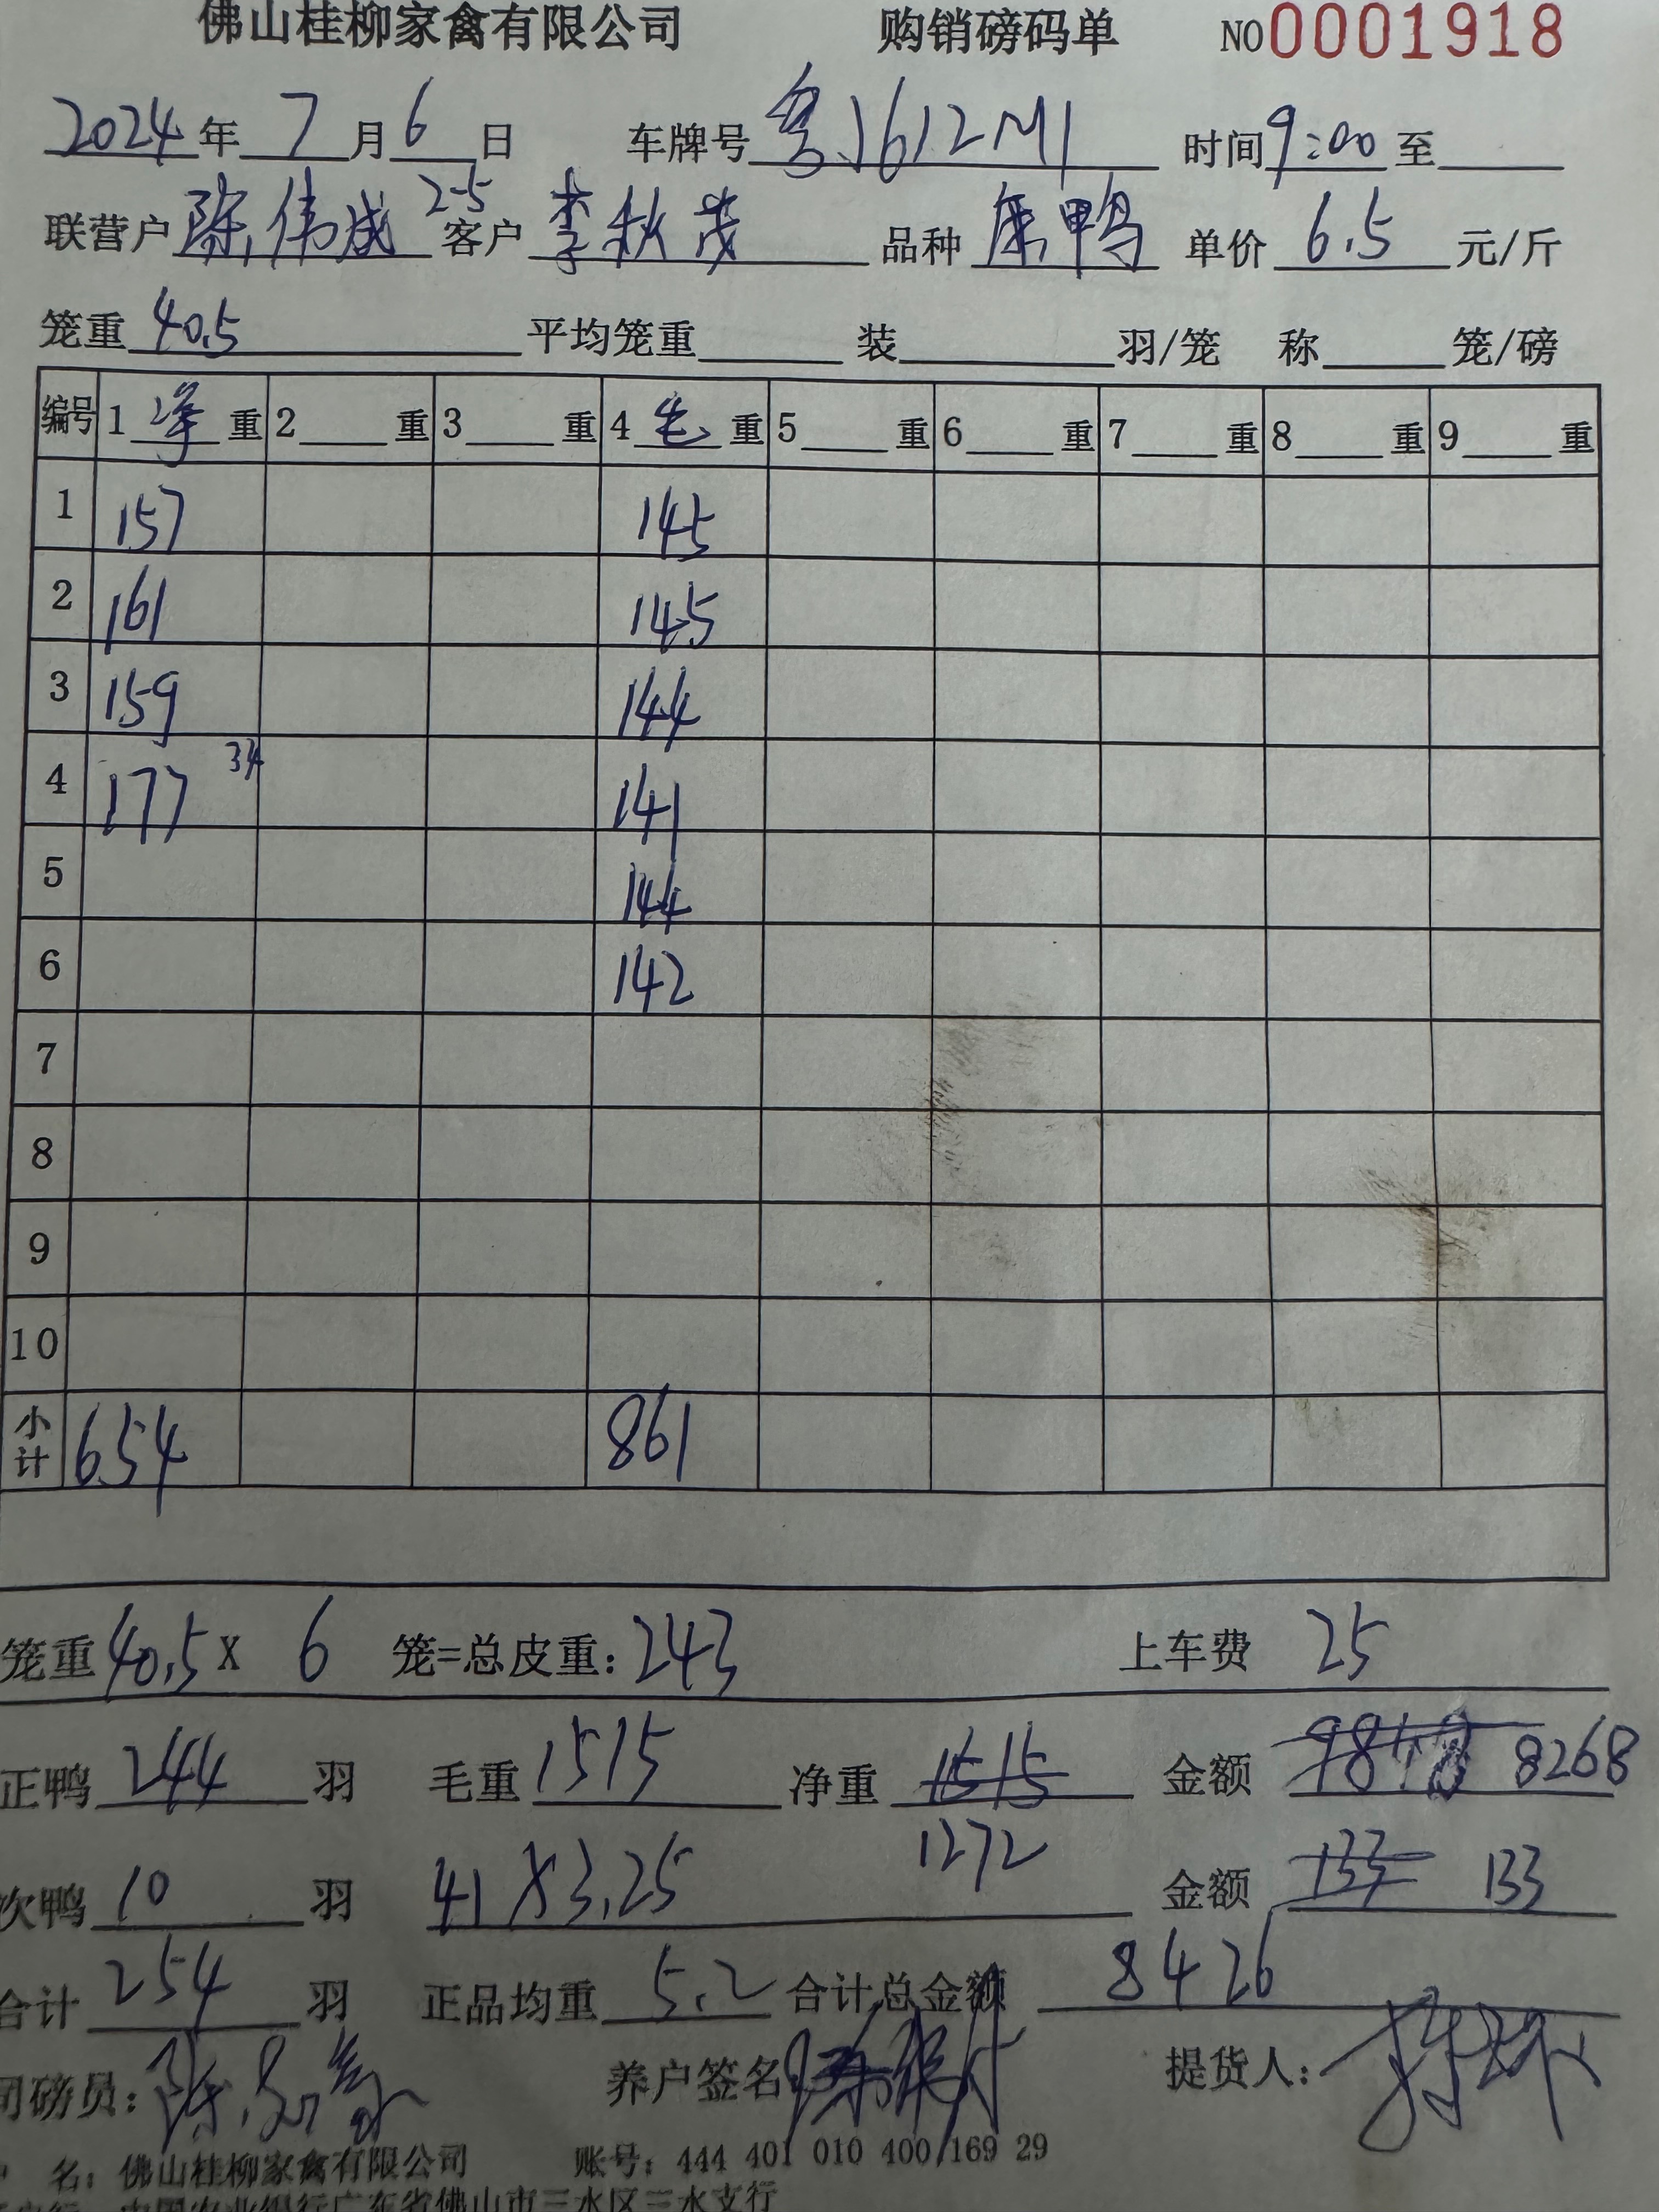 佛山桂柳家禽有限公司 购销磅码单 NO0001918
2024年7月6日 车牌号粤J612M1 时间9:00至
联营户陈伟成2-5客户李秋茂 品种康鸭 单价6.5元/斤
笼重40.5 平均笼重 装 羽/笼 称 笼/磅
编号 1净重 2 重 3 重 4毛重 5 重 6 重 7 重 8 重 9 重
1 157 145
2 161 145
3 159 144
4 177 141
5 144
6 142
7
8
9
10
小计 654 861
笼重40.5X 6 笼=总皮重:243 上车费 25
正鸭244羽 毛重1515 净重1515 金额 8268
1272
次鸭10羽 41X3.25 金额133 133
合计254羽 正品均重5.2合计总金额8426
司磅员: 养户签名 提货人:
名:佛山桂柳家禽有限公司 账号:444 401 010 400 169 29
佛山市三水区三水支行